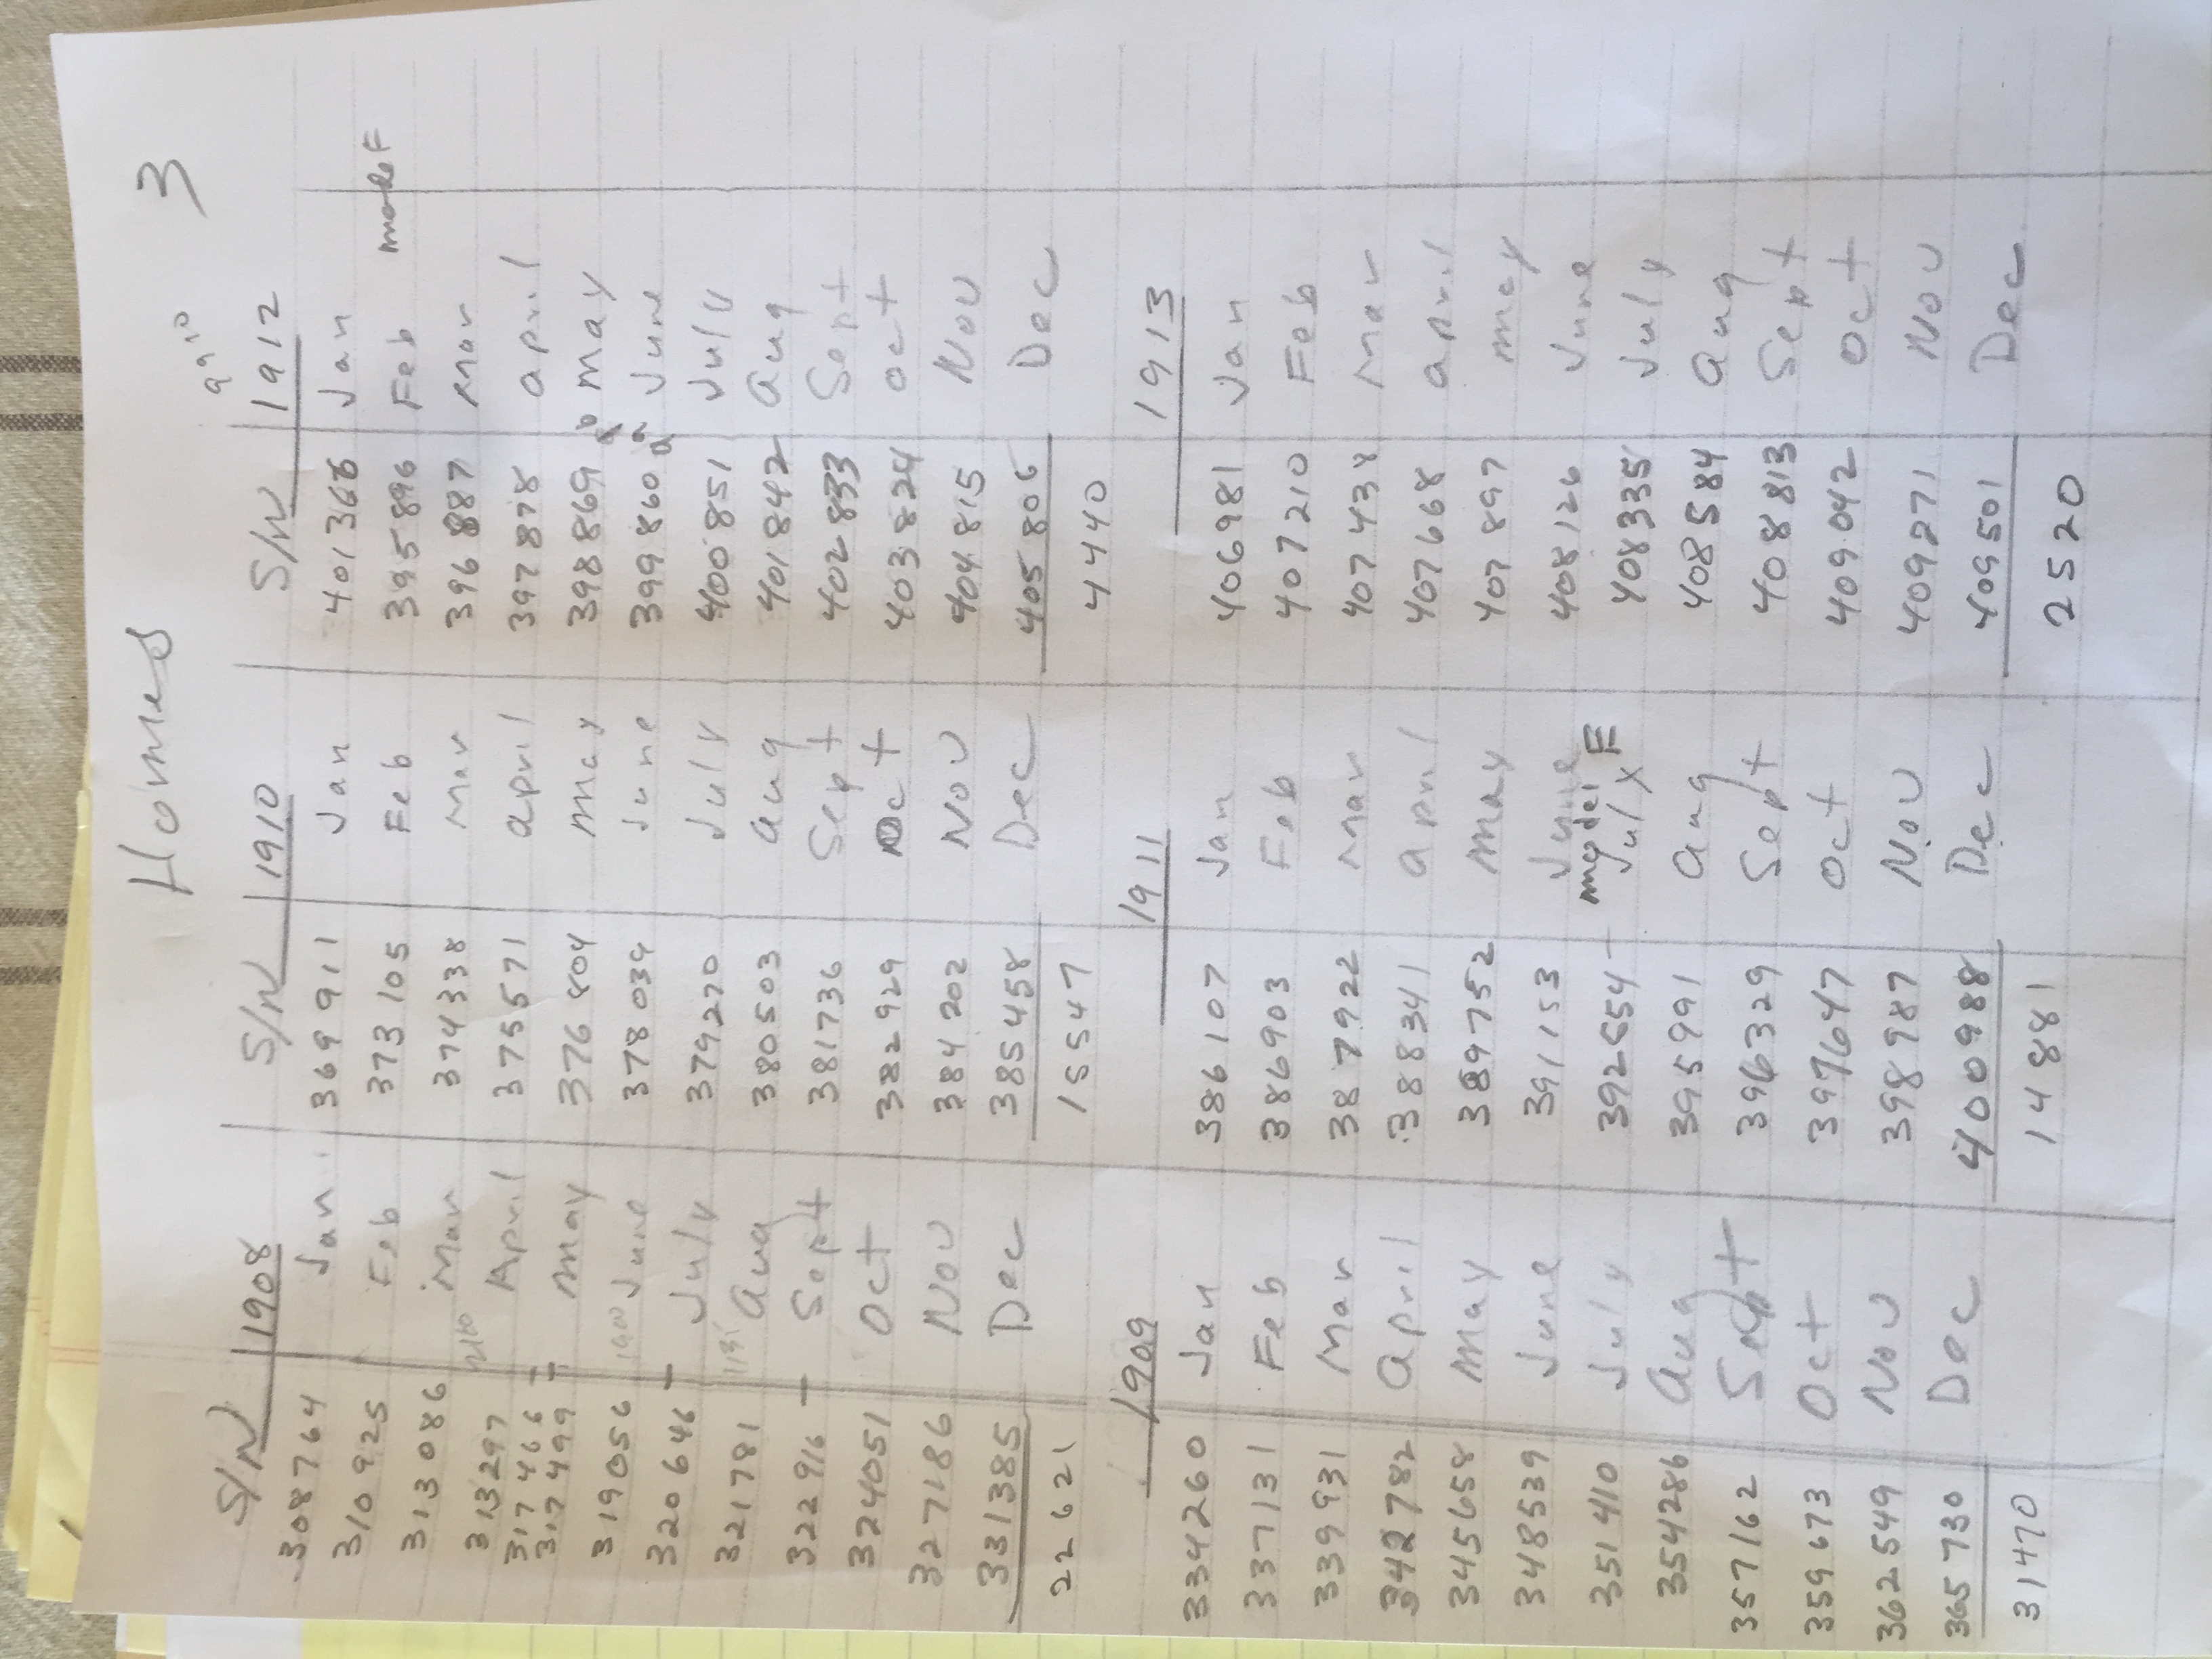 Homes 3
9910
S/N 1908 S/N 1910 S/N 1912
308764 Jan 369911 Jan 401366 Jan
310925 Feb 373105 Feb 395896 Feb model F
313086 Mar 374338 Mar 396887 Mar
313297 April 375571 april 397878 april
317466
317499 may 376804 may 398869 may
319056 June 378039 June 399860 June
320646 July 379270 July 400851 July
321781 Aug 380503 Aug 401842 Aug
322916 Sept 381736 Sept 402833 Sept
324051 Oct 382929 Oct 403824 Oct
327186 Nov 384202 Nov 404815 Nov
331385 Dec 385458 Dec 405806 Dec
22621 15547 4440
1909 1911 1913
334260 Jan 386107 Jan 406981 Jan
337131 Feb 386903 Feb 407210 Feb
339931 Mar 387922 Mar 407438 Mar
342782 April 388341 April 407668 april
345658 May 389752 may 407897 may
348539 June 391153 June 408126 June
model F
351410 July 392554 July 408335 July
354286 Aug 395991 Aug 408584 Aug
357162 Sept 396329 Sept 408813 Sept
359673 Oct 397647 Oct 409042 Oct
362549 Nov 398987 Nov 409271 Nov
365730 Dec 400988 Dec 409501 Dec
31470 14881 2520